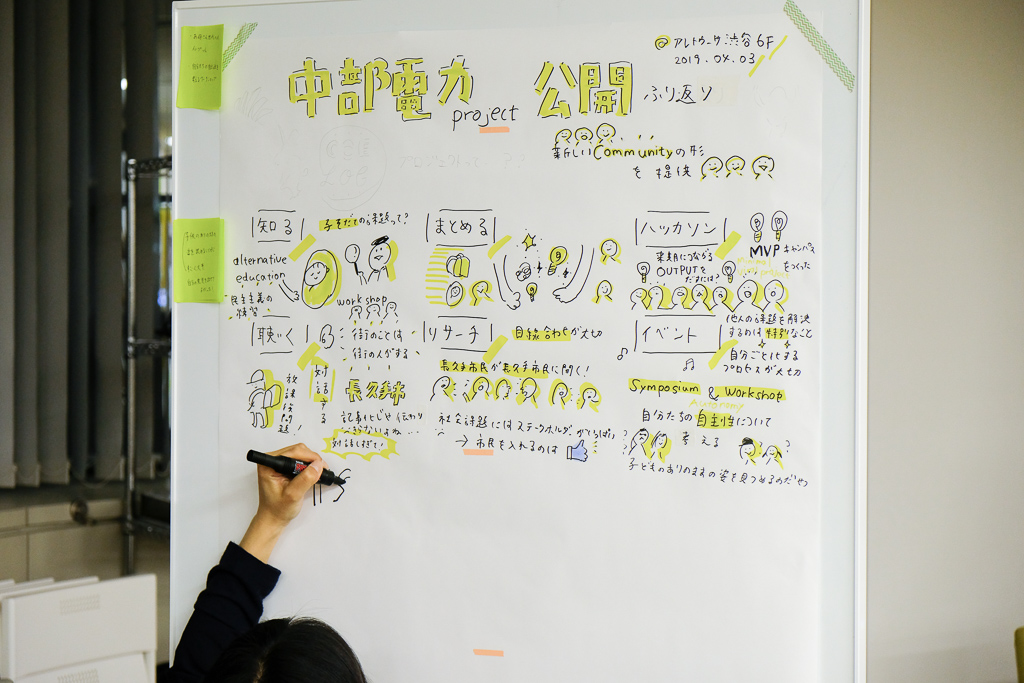 @ アレトゥーサ渋谷6F
2019.04.03
中部電力 project 公開 ふり返り
新しいCommunityの形
を提供
知る
子そだての課題って?
alternative
education
民主主義の
練習
workshop
聴く
街のことは
街の人がする
対話する
放課後問題!
長久手市
記事化じゃ伝わり
きらないよね…
対話しすぎて!
まとめる
リサーチ
目線合わせが大切
長久手市民が長久手市民に聞く!
社会課題にはステークホルダーがいっぱい
→ 市民を入れるのは
ハッカソン
来期につながる
OUTPUTを
だすには?
MVP キャンバス
をつくった
イベント
他人の課題を解決
するのは特別なこと
自分ごと化する
プロセスが大切
Symposium & Workshop
Autonomy
自分たちの自主性について
考える
子どものありのままの姿を見つめるのだいじ